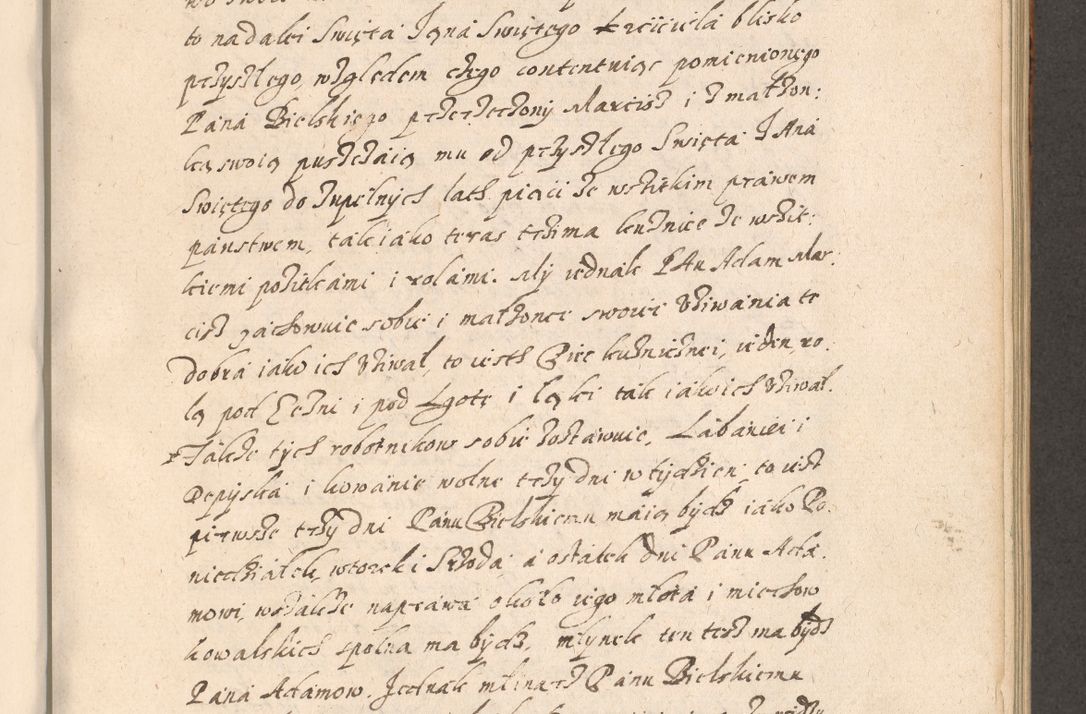 to nadalei Swięta Iana Swiętego Krzciciela blisko
przyszłego, względem czego contentuiąc pomienionego
Pana Bielskiego przerzeczony Marcisz i z małzon:
ką swoią puszczaią mu od przyszłego Swięta I Ana
Swiętego do zupełnych lath piąci ze wszitkim prawem
panstwem, tak iako teras trzima kuznice ze wszit:
kiemi pozitkami i rolami. Aly iednak PAn Adam Mar:
cisz zachowuie sobie i małzonce swoiei Vziwania te
dobra iako ich Vziwał, to iesth Piec kuznicznei, ieden, ro.
lą pod i pod Lgotę i ląki tak iako ich Vziwał.
Takze tych robotnikow sobie zostawuie, Labaniei i
Depijska i kowanie wolne trzy dni w tydzien to iest
pierwsze trzy dni Panu Bielskiemu maią bydz iako Po.
niedziałek, wtorek i Srzoda a ostatek dni Panu Ada.
mowi, wszakze naprawa około iego młota i miechow
kowalskich spolna ma bydz, młynek ten tesz ma bydz
Pana Adamow. Iednak młinarz Panu Bielskiemu